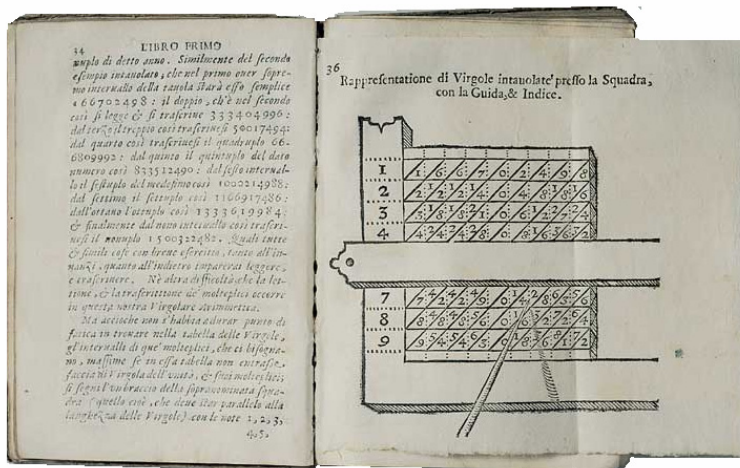 34 LIBRO PRIMO
nuplo di detto anno. Similmente del secondo
esempio intauolato, che nel primo ouer sopre-
mo interuallo della tauola starà esso semplice
166702498: il doppio, ch'è nel secondo
così si legge & si trascriue 333404996:
dal terzo il treppio così trascriuesi 50017494:
dal quarto così trascriuesi il quadruplo 66-
6809992: dal quinto il quintuplo del dato
numero così 833512490: dal sesto interual-
lo il sestuplo del medesimo così 1000214988:
dal settimo il settuplo così 1166917486:
dall'ottauo l'ottuplo così 1333619984:
& finalmente dal nono interuallo così trascri-
uesi il nonuplo 1500322482. Quali tutte
& simili cose con breue esercitio, tanto all'in-
nanzi, quanto all'indietro imparerai leggere,
e trascriuere. Nè altra difficoltà, che la let-
tione, & la trascrittione de' molteplici occorre
in questa nostra Virgolare aritmetica.
Ma accioche non s'habbia a durar punto di
fatica in trouare nella tabella delle Virgole,
gl'interualli di que' molteplici, che ci bisogna-
no, massime se in essa tabella non entrasse
faccia di Virgola dell'vnità, & suoi molteplici;
si segni l'vn braccio della sopranominata squa-
dra (quello cioè, che deue star parallelo alla
lunghezza delle Virgole) con le note 1, 2, 3,
4, 5,
36
Rappresentatione di Virgole intauolate presso la Squadra,
con la Guida, & Indice.
1 1 6 6 7 0 2 4 9 8
2 2 1/2 1/2 1/4 0 4 8 1/8 1/6
3 3 1/8 1/8 2/1 0 6 1/2 2/7 2/4
4 4 2/4 2/4 2/8 0 8 1/6 3/6 3/2
7 7 4/2 4/2 4/9 0 1/4 2/8 6/3 5/6
8 8 4/8 4/8 5/6 0 1/6 3/2 7/2 6/4
9 9 5/4 5/4 6/3 0 1/8 3/6 8/1 7/2